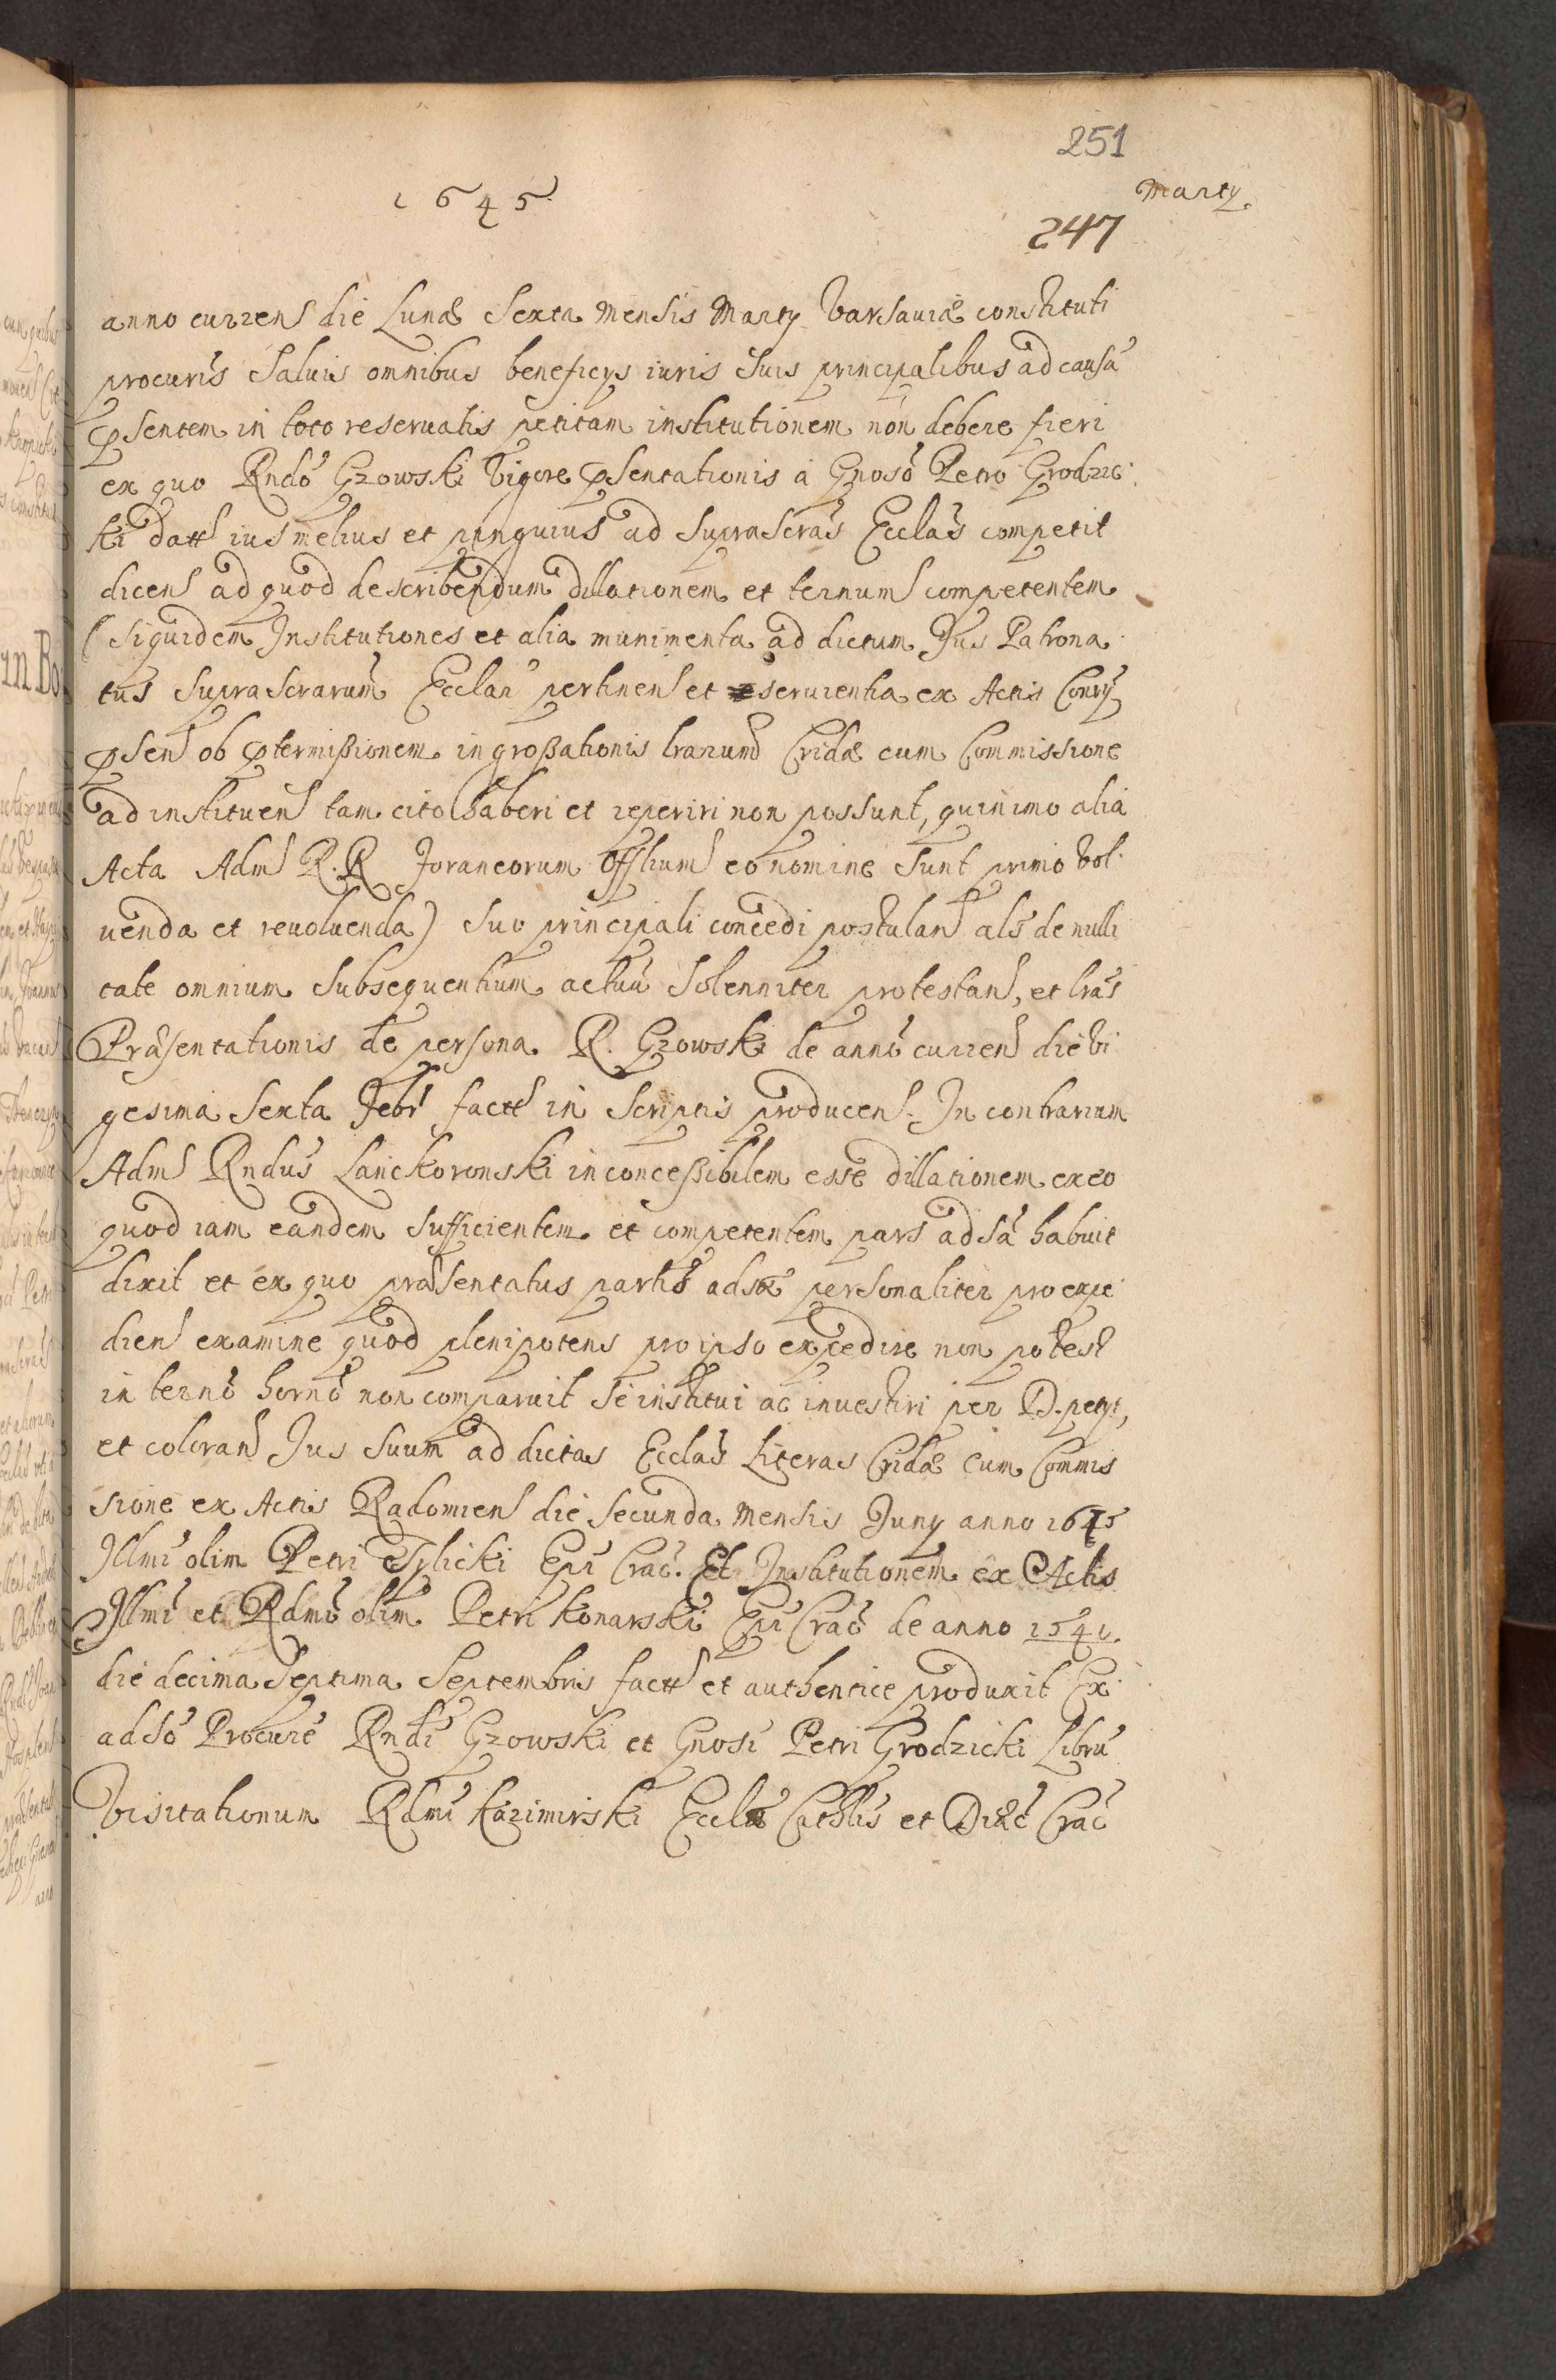 251
1645
Marty
247
anno currens die Lunæ Sexta Mensis Marty Varsauiæ constituti
procuris Saluis omnibus beneficys iuris Suis principalibus ad causa
psentem in toto reseruatis petitam institutionem non debere fieri
ex quo Rndo Gzowski Vigore psentationis a Gnoso Petro Grodzic
ki datt ius melius et pinguius ad Suprascras Ecclas competit
dicens ad quod describendum dillationem et ternum competentem
(Siquidem Institutiones et alia munimenta ad dictum Jus Patrona
tus Suprascrarum Ecclar pertinens et seruientia ex Actis Conry
psens ob ptermißionem ingroßationis lrarum Cridæ cum Commissione
ad instituen tam cito haberi et reperiri non possunt, quinimo alia
Acta Adm R.R foraneorum Offlium eo nomine Sunt primo Vol
uenda et reuoluenda) Suo principali concedi postulans als de nulli
tate omnium Subsequentium actuu Solenniter protestans, et lras
Præsentationis de persona R. Gzowski de anno currens die Vi
gesima Sexta Febr factt in Scriptis producens. In contrarium
Adm Rndus Lanckoronski inconceßibilem esse dillationem ex eo
quod iam eandem Sufficientem et competentem pars adsa habuit
dixit et ex quo præsentatus partis adsæ personaliter pro expe
diens examine quod plenipotens pro ipso expedire non potest
in terno horno non comparuit Se institui ac inuestiri per D. petyt,
et colorans Jus Suum ad dictas Ecclas Literas Cridæ cum Commis
sione ex Actis Radomiens die Secunda Mensis Juny anno 1615
Illmi olim Petri Tylicki Epi Crac. Et Institutionem ex Actis
Illmi et Rdmi olim Petri Konarski Epi Crac de anno 1541.
die decima Septima Septembris factt et authentice produxit Ex
adso Procure Rndi Gzowski et Gnosi Petri Grodzicki Libru
Visitationum Rdmi Kazimirski Eccla Cathlis et Diæc Crac